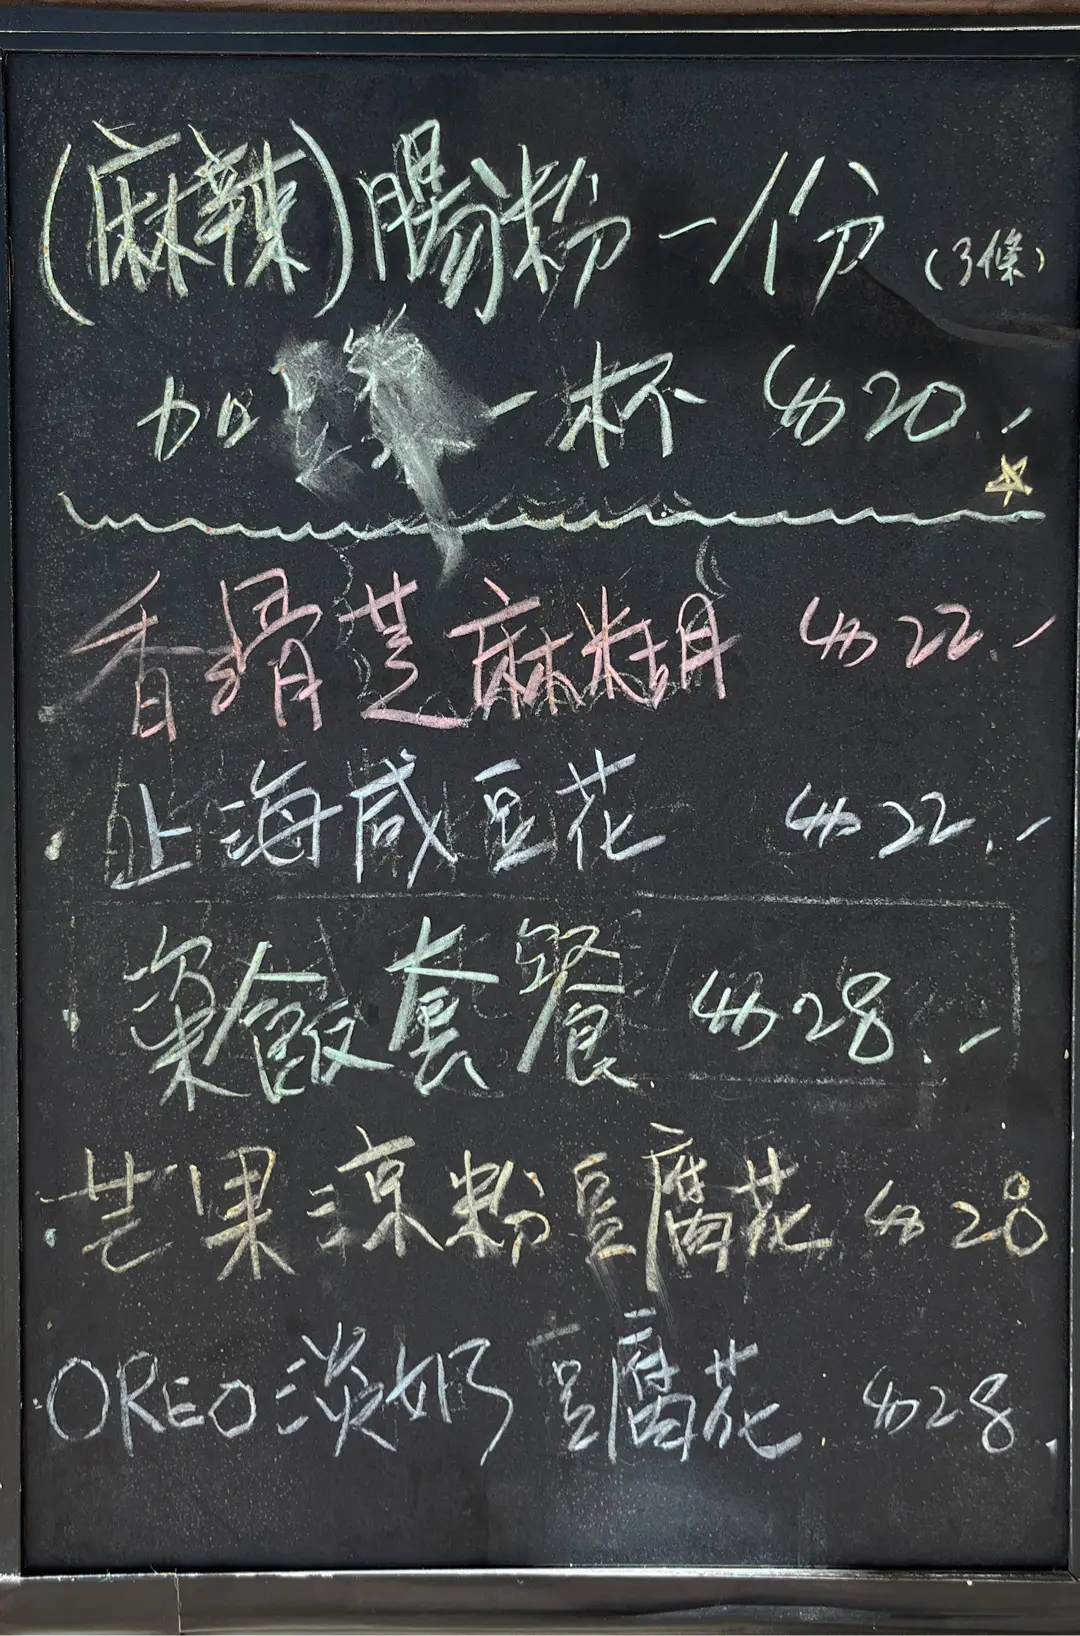 (麻辣)腸粉一份 (3條)
加 一杯 20.-
香滑芝麻糊 22.-
上海咸豆花 22.-
粢飯套餐 28.-
芒果涼粉豆腐花 28
OREO淡奶豆腐花 28.